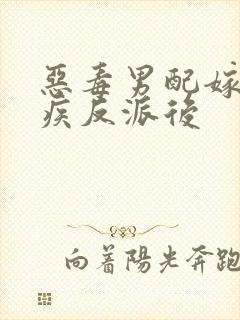 惡毒男配嫁
疾反派後
向著陽光奔跑